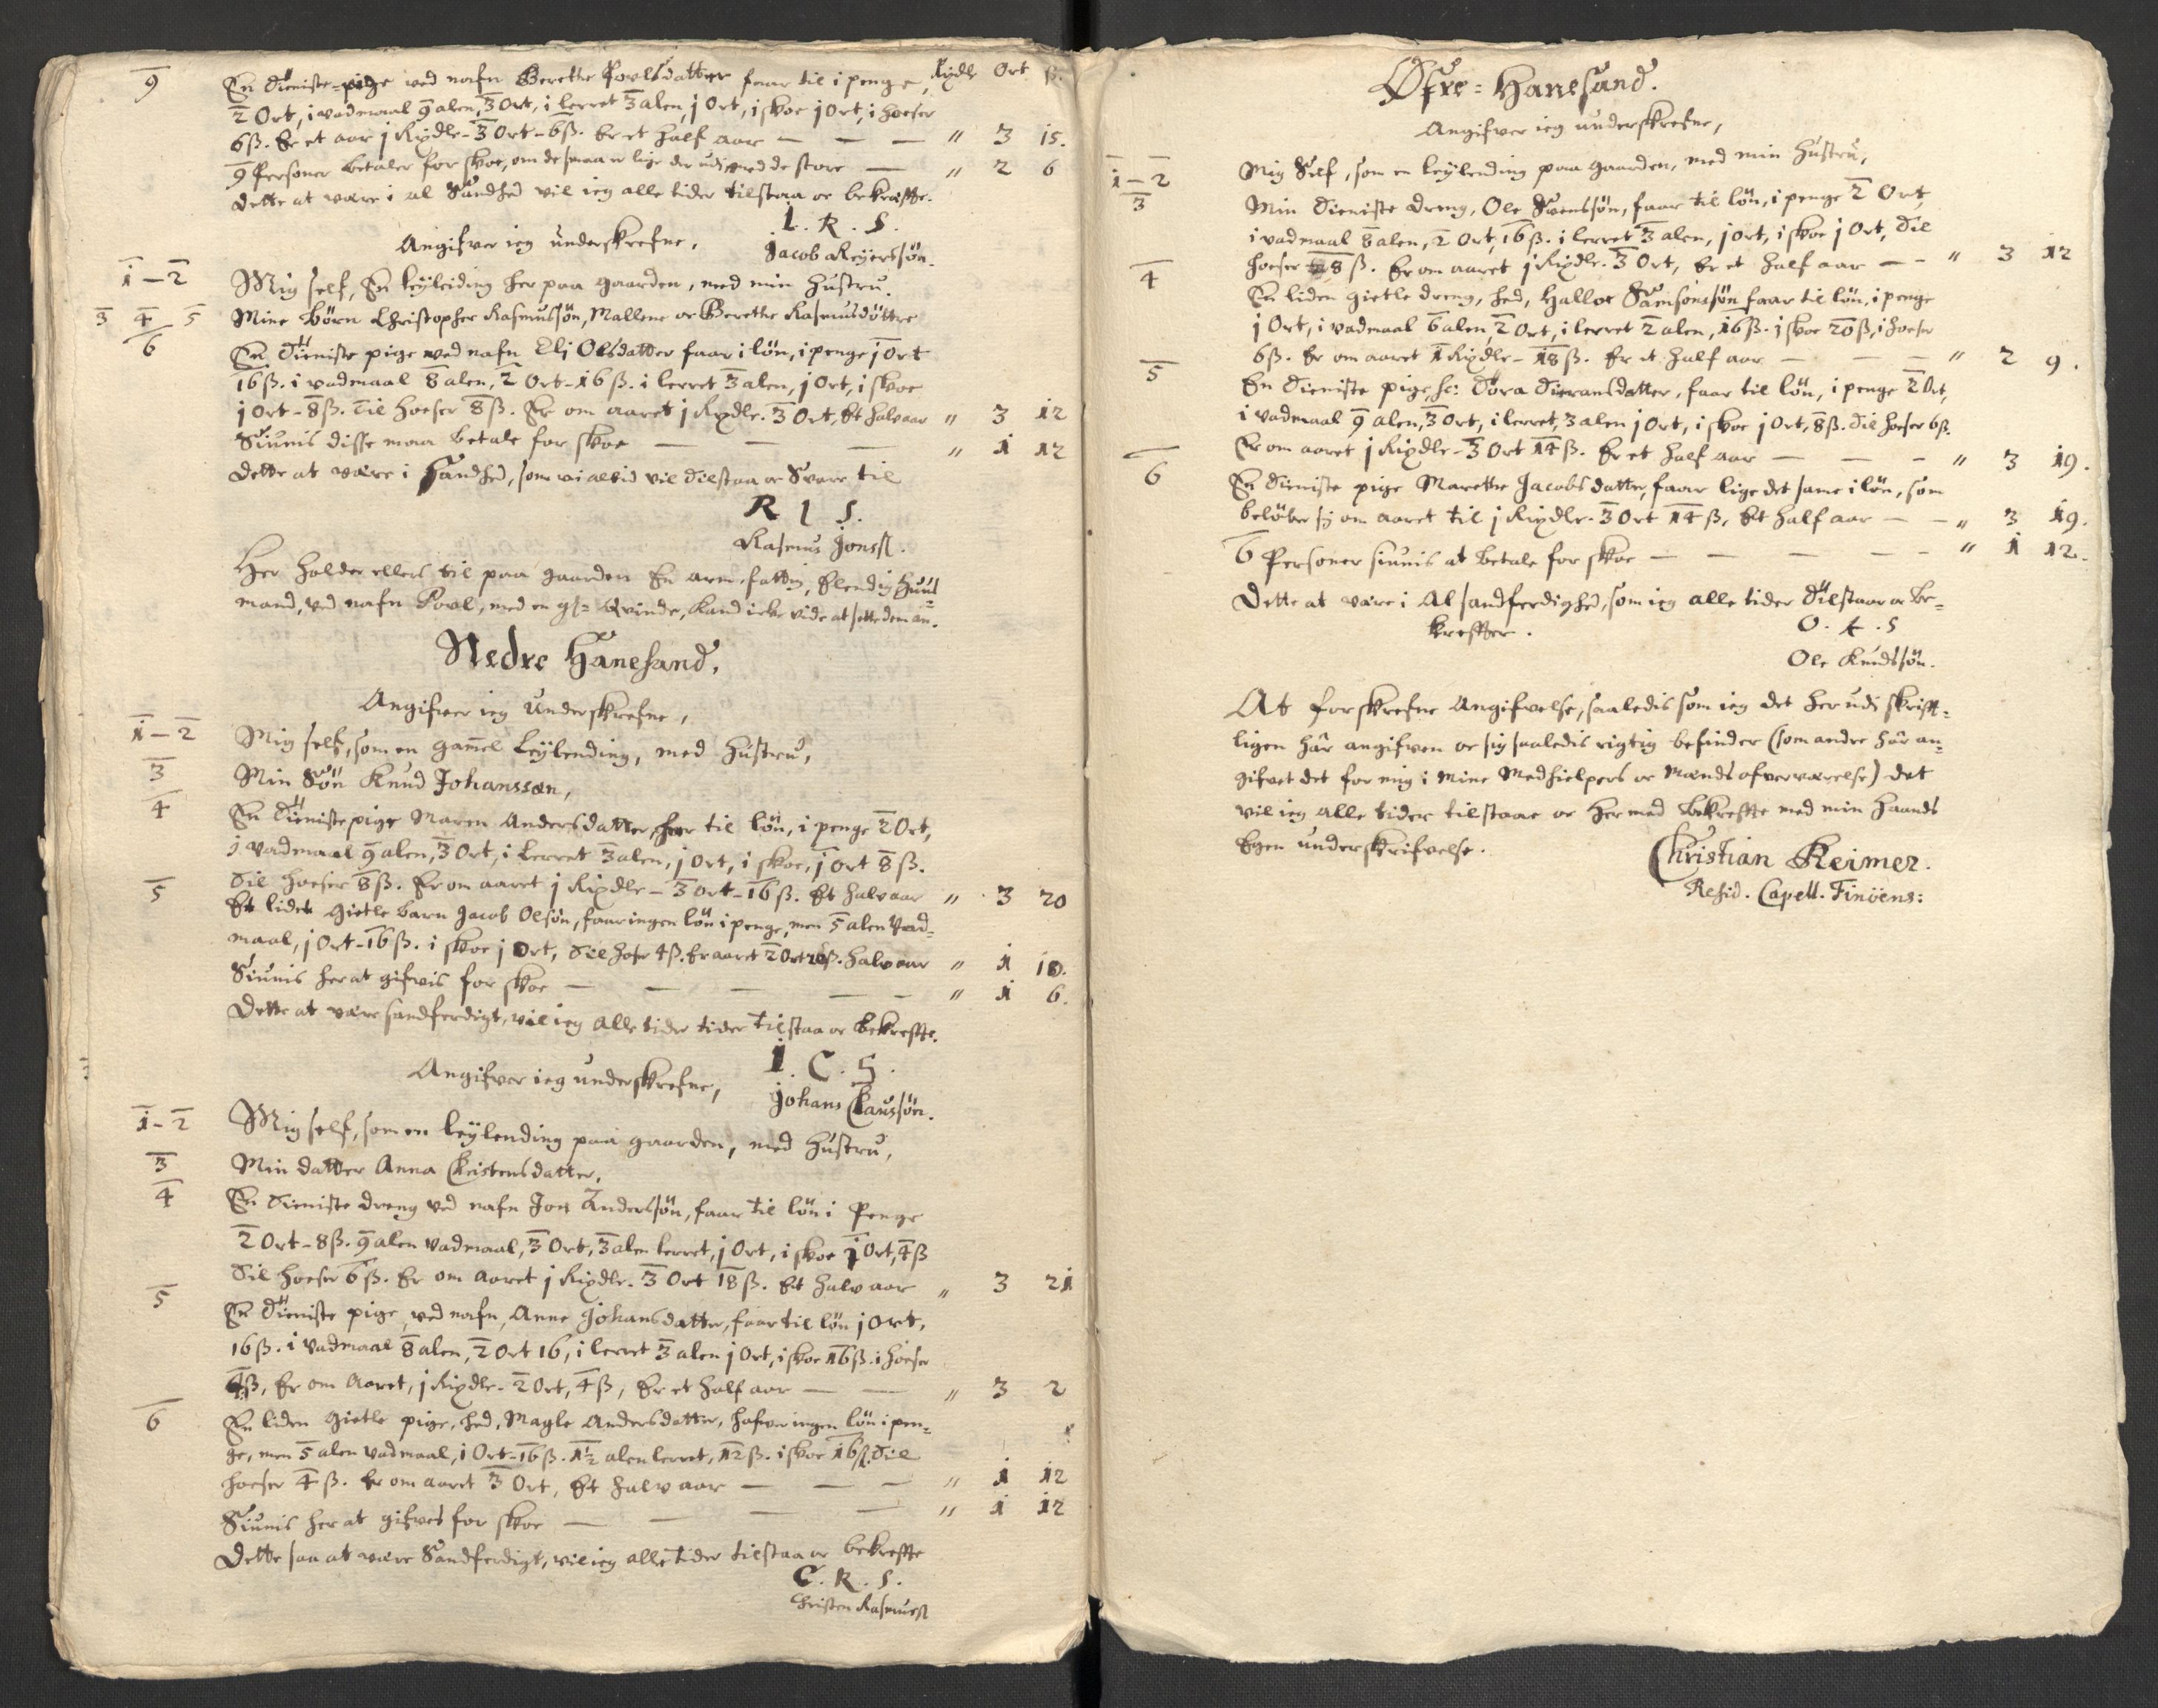 Rixdlr Ort ß.
9 En Tieniste-pige ved nafn Berethe Povlsdatter faar til i penge,
2 Ort, i vadmaal 9 alen, 3 Ort, i lerret 3 alen, j Ort, i skoe j Ort, i hoeser
6ß. Er et aar j Rixdlr-3 Ort-6ß. Er et half aar — — — " 3 15.
9 Personer betaler for skoe, om de smaa er lige der udj med de store — " 2 6
Dette at være i al Sandhed vil ieg alle tider tilstaa oc bekreffte.
I. R. S.
Angifver ieg underskrefne, Jacob Reyerssøn.
1-2 Mig self, En leylending her paa gaarden, med min hustru.
3 4 5 Mine børn Christopher Rasmussøn, Mallene oc Berethe Rasmusdøttre
6 En Tieniste pige ved nafn Elj Olsdatter faar i løn, i penge j Ort
16ß. i vadmaal 8 alen, 2 Ort-16ß. i lerret 3 alen, j Ort, i skoe
j Ort-8ß. Til hoeser 8ß. Er om aaret j Rixdlr. 3 Ort, Et halv aar " 3 12
Siunis disse maa betale for skoe — — — " 1 12
Dette at være i Sandhed, som vi altid vil Tilstaa oc Svare til
R I S.
Rasmus Jonss.
Her holder ellers til paa gaarden En arm, fattig, Elendig huus-
mand, ved nafn Povl, med en gl= Qvinde, kand icke vide at sette dem an.
Nedre Hanesand.
Angifver ieg Underskrefne,
1-2 Mig self, som en gam̄el Leylending, med hustru,
3 Min Søn Knud Johanssøn,
4 En Tieniste pige Maren Andersdatter, faar til løn, i penge 2 Ort,
j vadmaal 9 alen, 3 Ort, i Lerret 3 alen, j Ort, i skoe, j Ort 8ß.
Til hoeser 8ß. Er om aaret j Rixdlr-3 Ort-16ß. Et halv aar " 3 20
5 Et lidet Gietle barn Jacob Olsøn, faar ingen løn i penge, men 5 alen Vad-
maal, j Ort-16ß. i skoe j Ort, Til hoser 4ß. Er aaret 2 Ort 20ß. halv aar " 1 10.
Siunis her at gifvis for skoe — — — — " 1 6.
Dette at være sandferdigt, vil ieg alle tider tider tilstaa oc bekreffte.
I. C. S.
Angifver ieg underskrefne, Johans Claussøn.
1-2 Mig self, som en leylending paa gaarden, med hustru,
3 Min datter Anna Christensdatter,
4 En Tieniste dreng ved nafn Jon Anderssøn, faar til løn i Penge
2 Ort-8ß. 9 alen vadmaal, 3 Ort, 3 alen lerret, j Ort, i skoe j Ort, 4ß
Til hoeser 6ß. Er om aaret j Rixdlr. 3 Ort 18ß. Et halv aar " 3 21
5 En Tieniste pige, ved nafn, Anne Johansdatter, faar til løn j Ort,
16ß. i Vadmaal 8 alen, 2 Ort 16, i lerret 3 alen j Ort, i skoe 16ß. i hoeser
4ß, Er om Aaret, j Rixdlr-2 Ort, 4ß, Er et half aar — — " 3 2
6 En liden Gietle pige, hed, Magle Andersdatter, hafver ingen løn i pen-
ge, men 5 alen vadmaal, i Ort-16ß. 1½ alen lerret, 12ß. i skoe 16ß. Til
hoeser 4ß. Er om aaret 3 Ort, Et halv aar — — — " 1 12
Siunis her at gifves for skoe — — — — " 1 12
Dette saa at være Sandferdigt, vil ieg alle tider tilstaa oc bekreffte
C. R. S.
Christen Rasmuss
Øfre=Hanesand.
Angifver ieg underskrefne,
1-2 Mig Self, som en leylending paa gaarden, med min hustru,
3 Min Tieniste dreng, Ole Svenssøn, faar til løn, i penge 2 Ort,
i vadmaal 8 alen, 2 Ort, 16ß. i lerret 3 alen, j Ort, i skoe j Ort, Til
hoeser 8ß. Er om aaret j Rixdlr. 3 Ort, Er et half aar — - " 3 12
4 En liden gietle dreng, hed, Halvor Samsonssøn faar til løn, i penge
j Ort, i vadmaal 6 alen, 2 Ort, i lerret 2 alen, 16ß. i skoe 20ß, i hoeser
6ß. Er om aaret 1 Rixdlr-18ß. Er et half aar — — — " 2 9.
5 En Tieniste pige, h: Døra Tieransdatter, faar til løn, i penge 2 Ort,
i vadmaal 9 alen, 3 Ort, i lerret, 3 alen j Ort, i skoe j Ort, 8ß. Til hoeser 6ß.
Er om aaret j Rixdlr-3 Ort 14ß. Er et half aar — — - " 3 19.
6 En Tieniste pige Marethe Jacobsdatter, faar lige det same i løn, som
beløber sig om aaret til j Rixdlr. 3 Ort 14ß, Et half aar — - " 3 19.
6 Personer siunis at betale for skoe — — — — - " 1 12.
Dette at være i Al sandferdighed, som ieg alle tider Tilstaar oc be-
kreffter. O. K. S
Ole Knudssøn.
At forskrefne Angifvelse, saaledis som ieg det her udi skrifft-
ligen hâr angifven oc sig saaledis rigtig befinder (som andre hâr an-
gifvet det for mig i mine Medhielpers oc Mænds ofverværelse) det
vil ieg alle tider tilstaae oc her med bekreffte med min haands
Egen underskrifvelse.
Christian Reimer.
Resid. Capell. Finöens: